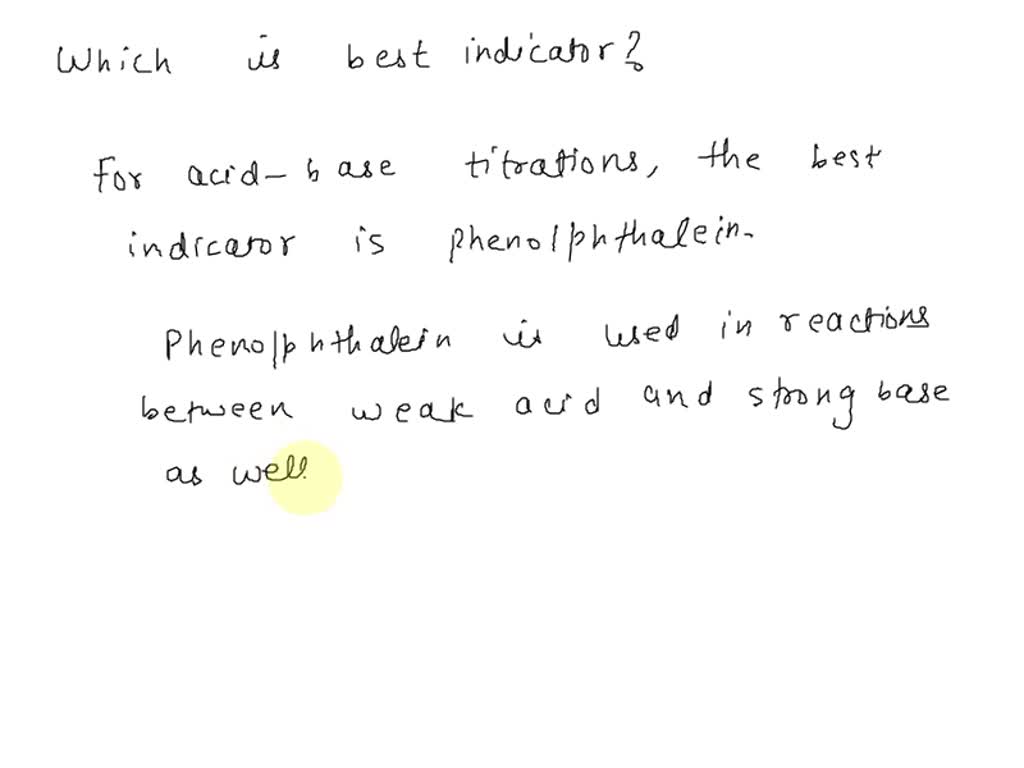 Which is best indicator?
For acid-base titrations, the best
indicator is phenolphthalein.
Phenolphthalein is used in reactions
between weak acid and strong base
as well.